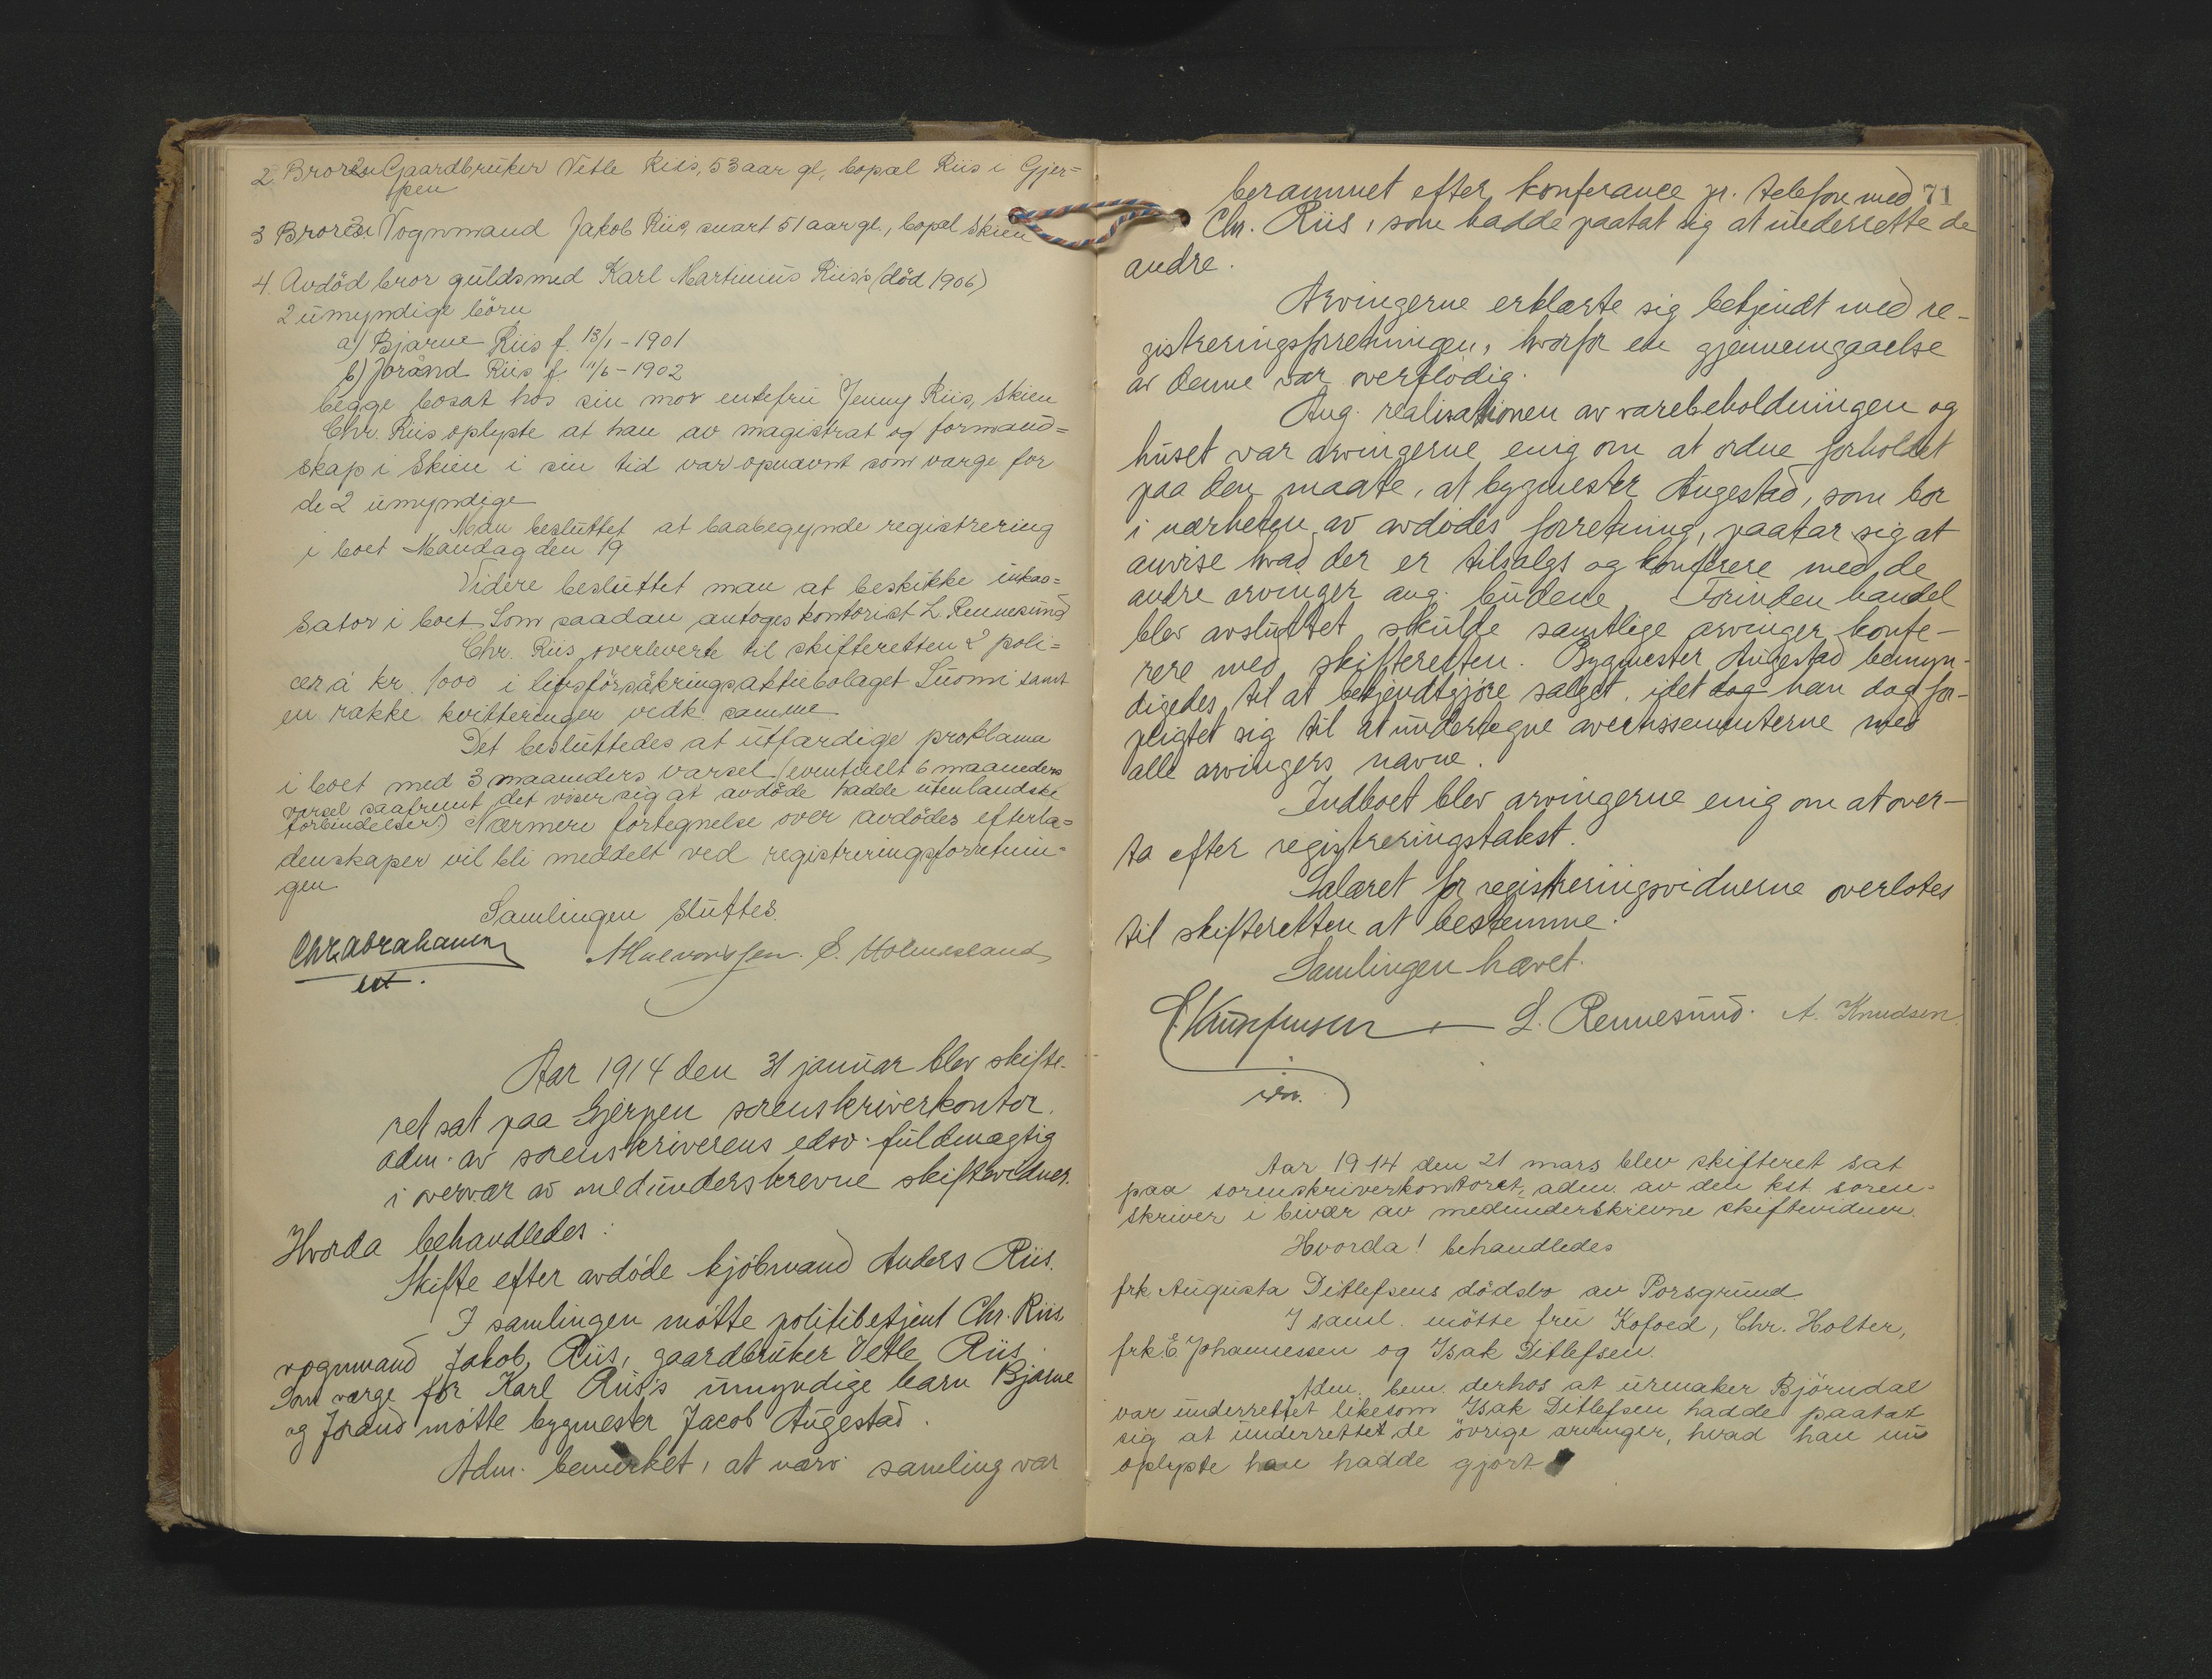 2. Broren Gaardbruker Vetle Riis, 53 aar gl, bopæl Riis i Gjer=
pen
3 Broren Vognmand Jakob Riis, snart 51 aar gl., bopæl Skien
4. Avdöd bror guldsmed Karl Martinius Riis's (död 1906)
2 umyndige börn
a) Bjarne Riis f. 13/1 - 1901
b) Jorånd Riis f. 11/6 - 1902
begge bosat hos sin mor enkefru Jenny Riis, Skien
Chr. Riis oplyste at han av magistrat og formand=
skap i Skien i sin tid var opnævnt som værge for
de 2 umyndige
Man besluttet at paabegynde registrering
i boet Mandag den 19
Videre besluttet man at beskikke inkas=
sator i boet. Som saadan antoges kontorist L. Rennesund
Chr. Riis overleverte til skifteretten 2 poli=
cer á kr. 1000 i lifsförsäkringsaktiebolaget Suomi samt
en række kvitteringer vedk. samme
Det besluttedes at utfærdige proklama
i boet med 3 maaneders varsel (eventuelt 6 maaneders
varsel saafremt det viser sig at avdöde hadde utenlandske
forbindelser.) Nærmere fortegnelse over avdödes efterla=
denskaper vil bli meddelt ved registreringsforretnin=
gen
Samlingen sluttes.
Chr. Abrahamsen A Halvorsen. E. Holmesland
cst.
Aar 1914 den 31 januar blev skifte-
ret sat paa Gjerpen sorenskriverkontor.
adm. av sorenskriverens edsv. fuldmægtig
i overvær av medunderskrevne skiftevidner.
Hvorda behandledes:
Skifte efter avdöde kjöbmand Anders Riis.
I samlingen mötte politibetjent Chr. Riis
vognmand Jakob Riis, gaardbruker Vetle Riis.
Som værge for Karl Riis's umyndige barn Bjarne
og Jorand mötte bygmester Jacob Augestad.
Adm. bemerket, at nærv. samling var
71
berammet efter konferance pr. telefon med
Chr. Riis, som hadde paatat sig at underrette de
andre.
Arvingerne erklærte sig bekjendt med re-
gistreringsforretningen, hvorfor en gjennemgaaelse
av denne var overflödig.
Ang. realisationen av varebeholdningen og
huset var arvingerne enig om at ordne forholdet
paa den maate, at bygmester Augestad, som bor
i nærheten av avdödes forretning, paatar sig at
anvise hvad der er tilsalgs og konferere med de
andre arvinger ang. budene. Forinden handel
blev avsluttet skulde samtlige arvinger konfe-
rere med skifteretten. Bygmester Augestad bemyn-
digedes til at bekjendtgjöre salget, idet dog han dog for-
pligtet sig til at undertegne avertissementerne med
alle arvingers navne.
Indboet blev arvingerne enig om at over-
ta efter registreringstakst.
Salæret for registreringsvidnerne overlotes
til skifteretten at bestemme.
Samlingen hævet.
L. Rennesund. A. Knudsen
Aar 1914 den 21 mars blev skifteret sat
paa sorenskriverkontoret, adm. av den kst. soren-
skriver i bivær av medunderskrevne skiftevidner.
Hvorda! behandledes
frk Augusta Ditlefsens dödsbo av Porsgrund
I saml. mötte fru Kofoed, Chr. Holter,
frk E Johannessen og Isak Ditlefsen.
Adm. bem. derhos at urmaker Björndal
var underrettet likesom Isak Ditlefsen hadde paatat
sig at underrettet de övrige arvinger, hvad han nu
oplyste han hadde gjort